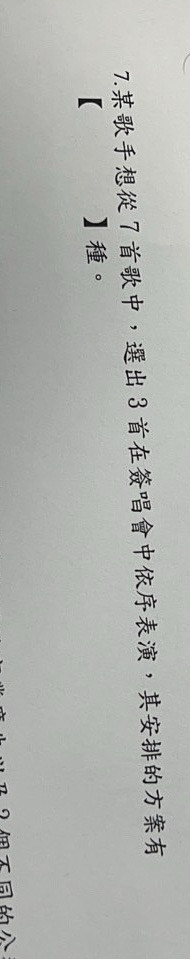 7.某歌手想從7首歌中，選出3首在簽唱會中依序表演，其安排的方案有
【　　　】種。
2個不同的公